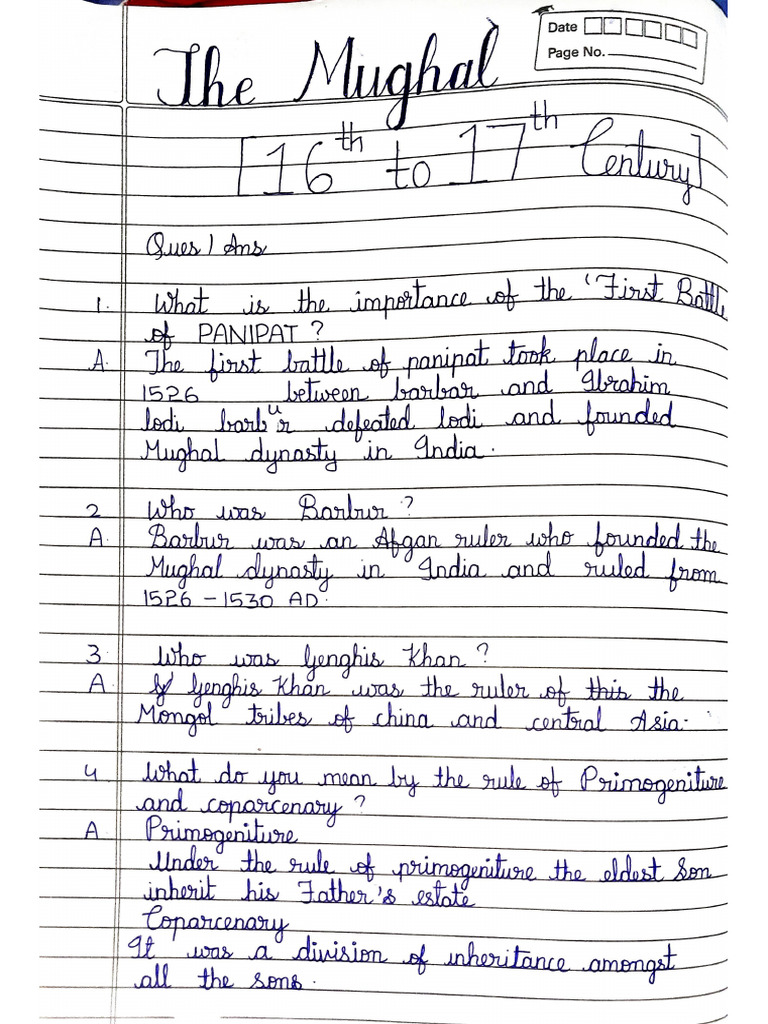 Date
Page No.
The Mughal
[16th to 17th Century]
Ques / Ans
1. What is the importance of the 'First Battle
of PANIPAT ?
A. The first battle of panipat took place in
1526 between barbar and Ibrahim
lodi barbur defeated lodi and founded
Mughal dynasty in India.
2 Who was Barbur ?
A. Barbur was an Afgan ruler who founded the
Mughal dynasty in India and ruled from
1526 - 1530 AD.
3. Who was Genghis Khan ?
A Genghis Khan was the ruler of this the
Mongol tribes of china and central Asia.
4 What do you mean by the rule of Primogeniture
and coparcenary ?
A Primogeniture
Under the rule of primogeniture the eldest Son
inherit his Father's estate
Coparcenary
It was a division of inheritance amongst
all the sons.